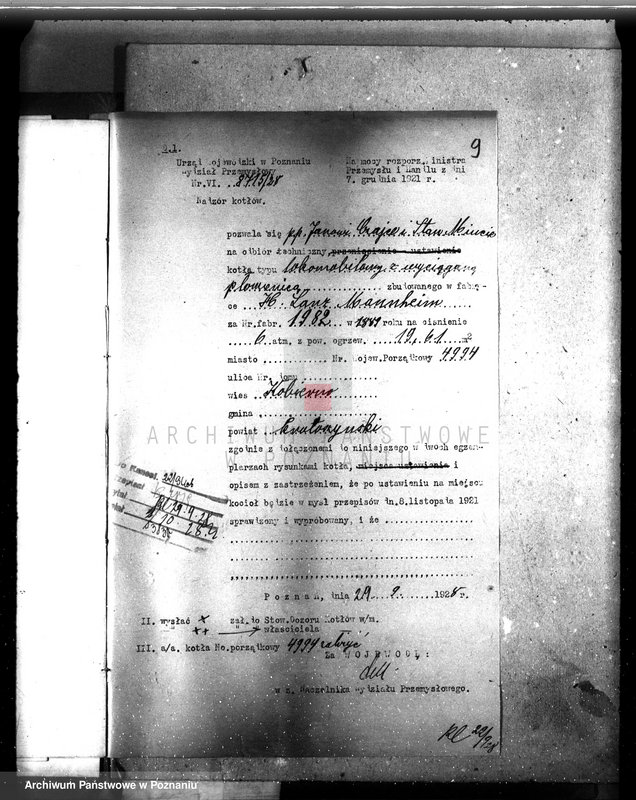 9
I.
Urząd Wojewódzki w Poznaniu
Wydział Przemysłowy
Nr.VI. . 8715/28
Nadzór kotłów.
Na mocy rozporz. Ministra
Przemysłu i Handlu z dni
7. grudnia 1921 r.
pozwala się pp. Czajce i Staw. Mincie
na odbiór techniczny przemieszenie - ustawienie
kotła typu lokomobilowy z wyciąganą
płomienicą . . . . . zbudowanego w fabry-
ce . . H. Lanz. Mannheim . . . .
za Nr.fabr. 1982 . . w 1889 roku na ciśnienie
. . . 6 atm. z pow. ogrzew. . . . 19,61 . . m2
miasto . . . . . . . . Nr. Wojew.Porządkowy 4994
ulica Nr. domu . . . . . . . . . .
wieś . . Kobierno . . . . .
gmina . . . . . . . . . . . . . .
powiat . . Krotoszyński
zgodnie z dołączonemi do niniejszego w dwóch egzem-
plarzach rysunkami kotła, miejsca ustawienia i
opisem z zastrzeżeniem, że po ustawieniu na miejscu
kocioł będzie w myśl przepisów dn.8.listopada 1921
sprawdzony i wypróbowany, i że . . . . . . . . . . .
Poznań, dnia 29 . . 9 . . . . 1928 r.
II. wysłać x zał. do Stow.Dozoru Kotłów w/m.
++ właściciela
III. a/a. kotła No.porządkowy 4994
Za WOJEWODĘ:
w z. Naczelnika Wydziału Przemysłowego.
ARCHIWUM PAŃSTWOWE
W POZNANIU
Archiwum Państwowe w Poznaniu